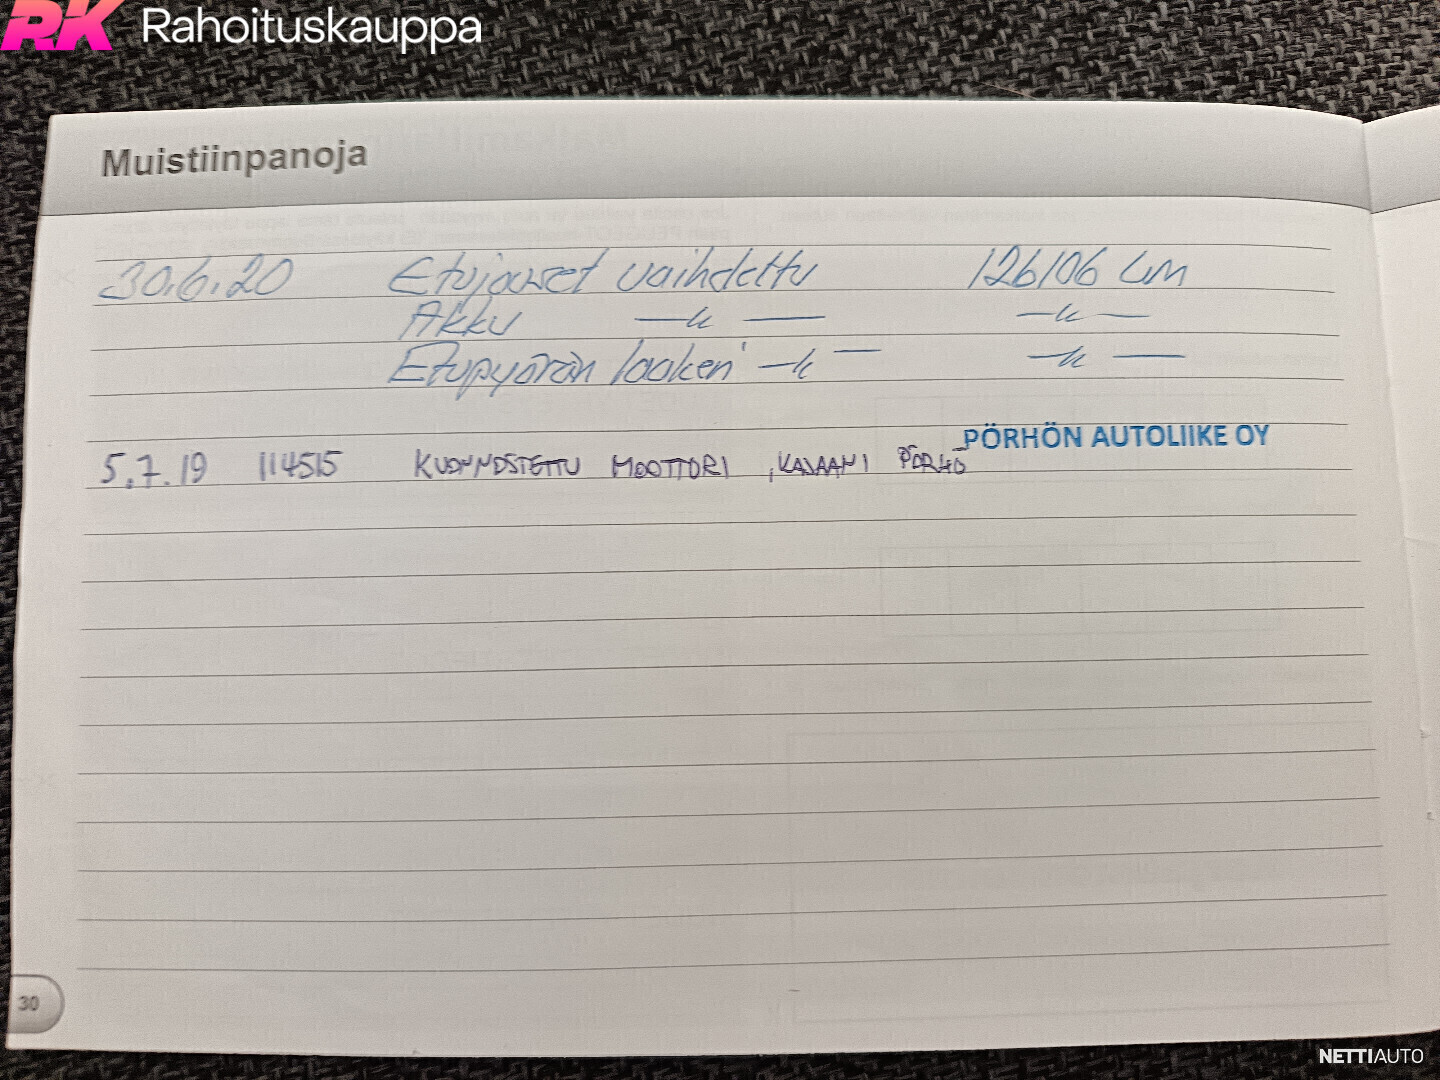 RK Rahoituskauppa
Muistiinpanoja
30.6.20 Etujouset vaihdettu 126106 km
Akku —"— —"—
Etupyörän laakeri —"— —"—
PÖRHÖN AUTOLIIKE OY
5.7.19 114515 KUNNOSTETTU MOOTTORI, KAJAANI PÖRHÖ
30
NETTIAUTO